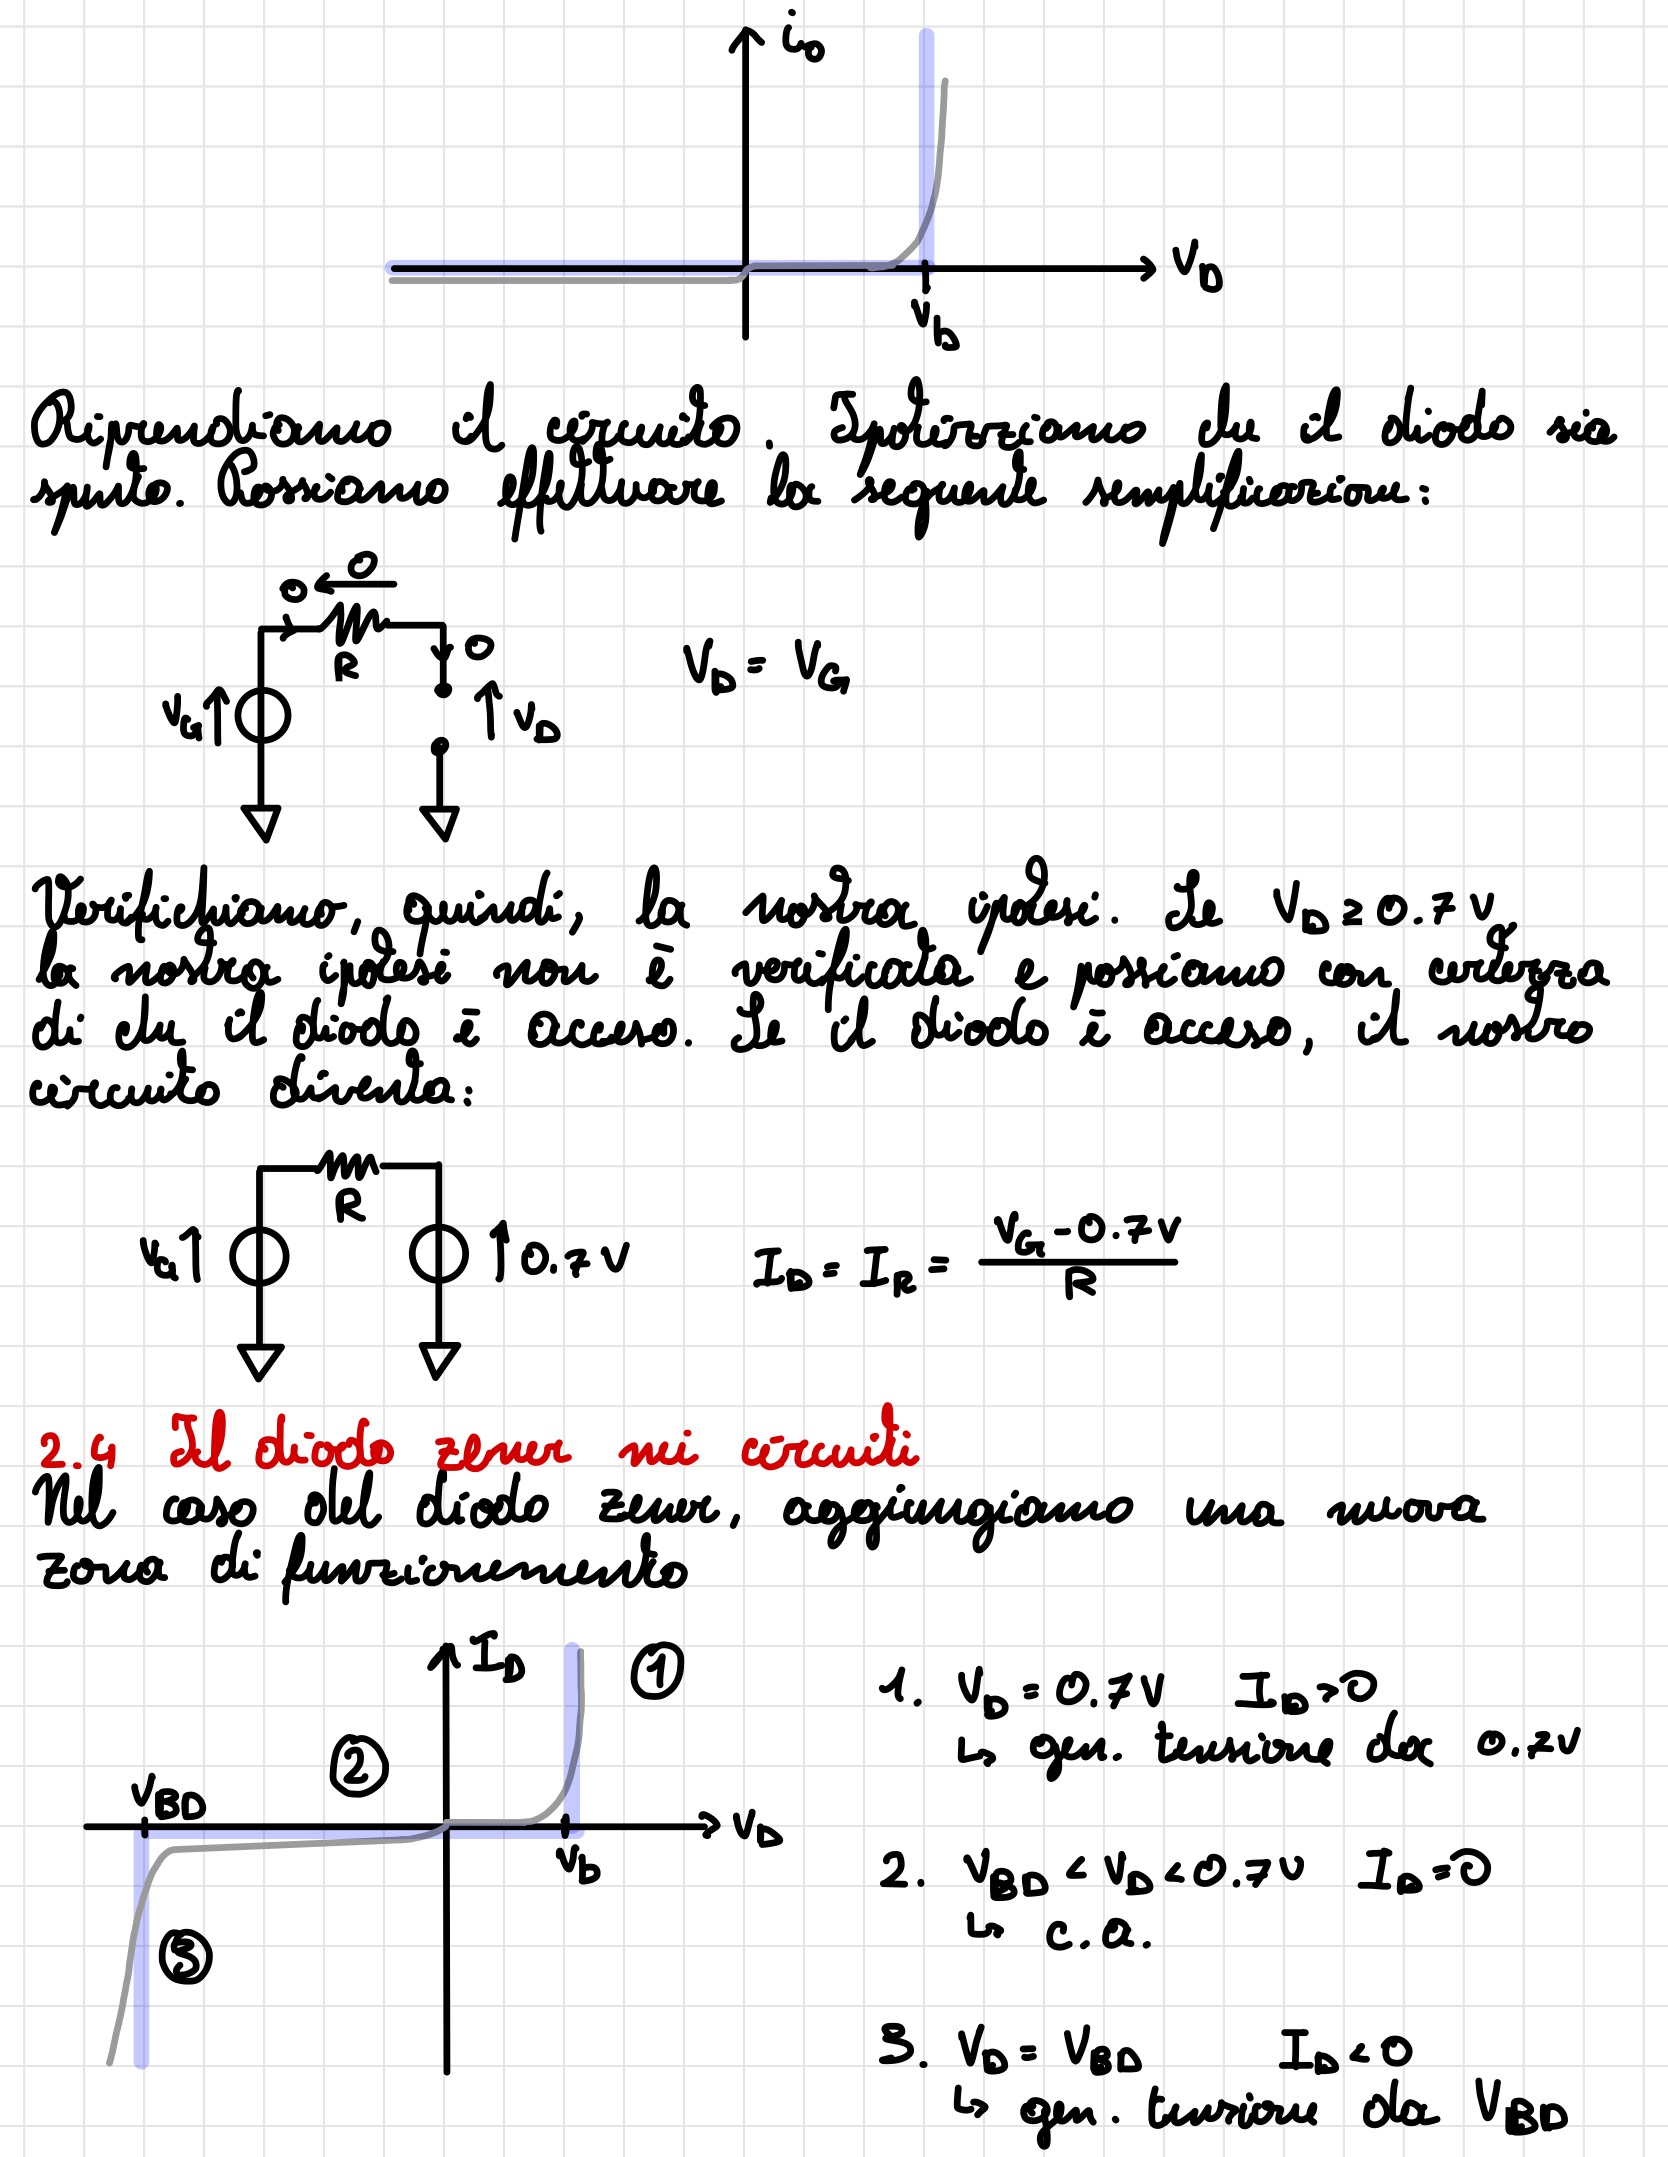 i_D
V_D
V_b
Riprendiamo il circuito. Ipotizziamo che il diodo sia
spento. Possiamo effettuare la seguente semplificazione:
0
0
R
0
V_G
V_D
V_D = V_G
Verifichiamo, quindi, la nostra ipotesi. Se V_D ≥ 0.7 V,
la nostra ipotesi non è verificata e possiamo con certezza
di che il diodo è acceso. Se il diodo è acceso, il nostro
circuito diventa:
R
V_G
0.7 V
I_D = I_R = (V_G - 0.7 V) / R
2.4 Il diodo zener nei circuiti
Nel caso del diodo zener, aggiungiamo una nuova
zona di funzionamento
I_D
1
2
V_BD
V_D
V_b
3
1. V_D = 0.7 V I_D > 0
↳ gen. tensione da 0.7 V
2. V_BD < V_D < 0.7 V I_D = 0
↳ c.a.
3. V_D = V_BD I_D < 0
↳ gen. tensione da V_BD